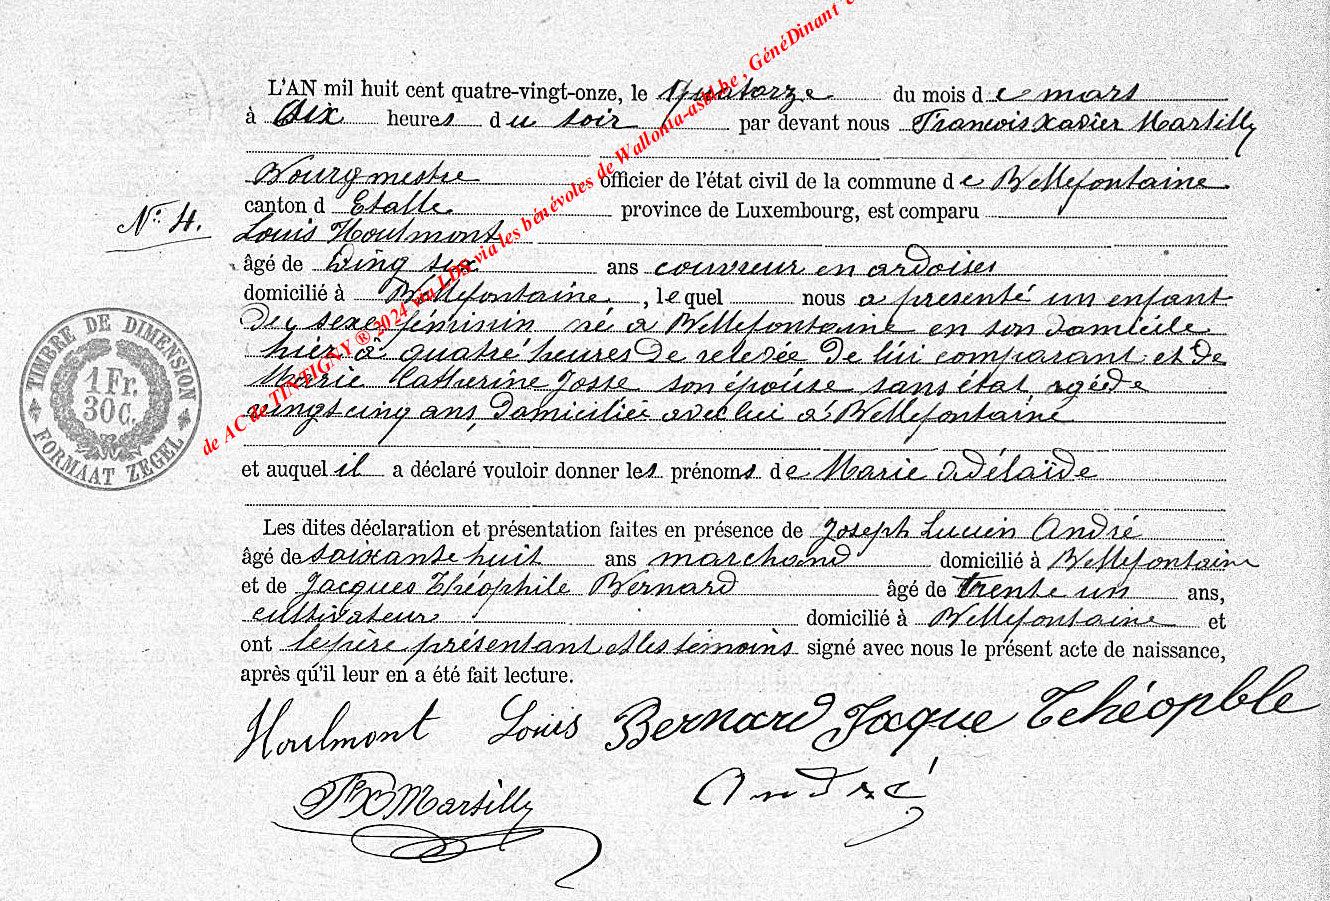 L'AN mil huit cent quatre-vingt-onze, le Quatorze du mois de mars
à Six heures du soir par devant nous Francois Xavier Marsilly
Bourgmestre officier de l'état civil de la commune de Bellefontaine
N° 4.
canton d Etalle province de Luxembourg, est comparu
Louis Houlmont
âgé de Vingt six ans couvreur en ardoises
domicilié à Bellefontaine, lequel nous a presenté un enfant
du sexe féminin né a Bellefontaine en son domicile
hier à quatre heures de relevée de lui comparant et de
Marie Catherine Josse son épouse sans état agée de
vingt cinq ans, domiciliée avec lui à Bellefontaine
et auquel il a déclaré vouloir donner les prénoms de Marie Adélaïde
Les dites déclaration et présentation faites en présence de Joseph Lucien André
âgé de soixante huit ans marchand domicilié à Bellefontaine
et de Jacques Théophile Bernard âgé de trente un ans,
cultivateur domicilié à Bellefontaine et
ont le père présentant et les témoins signé avec nous le présent acte de naissance,
après qu'il leur en a été fait lecture.
Houlmont Louis Bernard Jaque Théophle
FX Marsilly André
TIMBRE DE DIMENSION
1 Fr.
30 C.
FORMAAT ZEGEL
de AC de TINTIGNY ® 2024 via LDS via les bénévoles de Wallonia-asbl.be , GénéDinant